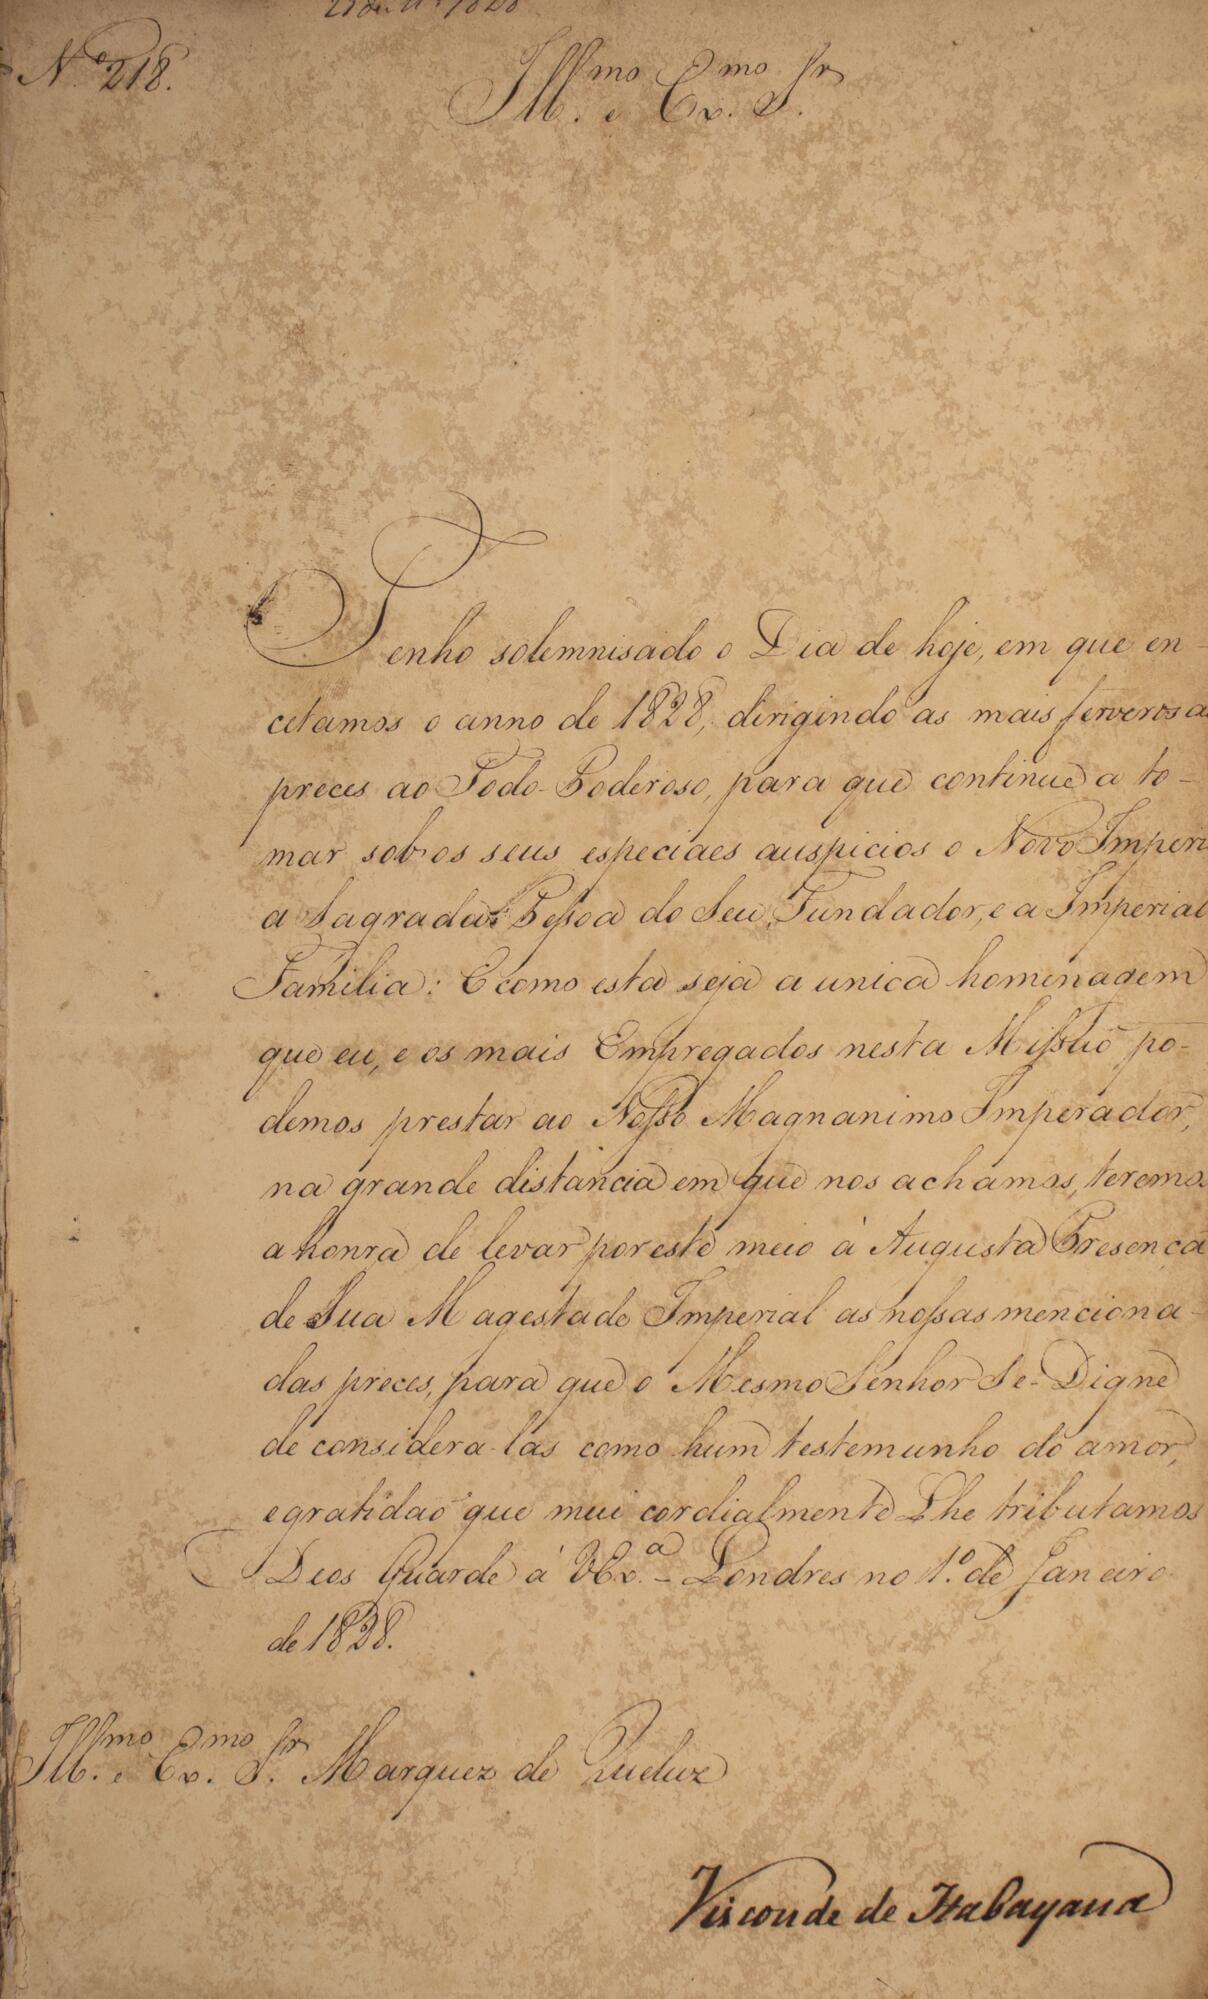 Nº 218.
Illmo e Exmo Sr
Tenho solemnisado o Dia de hoje, em que en-
cetamos o anno de 1828, dirigindo as mais fervorosas
preces ao Todo-Poderoso, para que continue a to-
mar sob os seus especiaes auspicios o Novo Imperio
a Sagrada Pessoa do Seu Fundador, e a Imperial
Familia: E como esta seja a unica homenagem
que eu, e os mais Empregados nesta Missão po-
demos prestar ao Nosso Magnanimo Imperador,
na grande distancia em que nos achamos, teremos
a honra de levar por este meio à Augusta Presença
de Sua Magestade Imperial as nossas menciona-
das preces, para que o Mesmo Senhor Se-Digne
de considera-las como hum testemunho do amor,
e gratidaõ que mui cordialmente Lhe tributamos
Deos Guarde à VExª - Londres no 1º. de Janeiro
de 1828.
Illmo e Exmo Sr Marquez de Queluz
Visconde de Itabayana